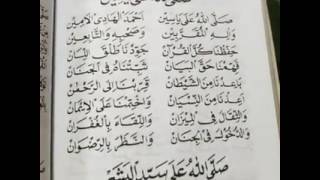 صَلَّى اللهُ عَلَى يَاسِيْنَ أَحْمَدَ الْهَادِي الْأَمِيْن
وَآلِهِ الْمُقَرَّبِيْن وَصَحْبِهِ وَالتَّابِعِيْن
حَفِظْنَا كُلَّ الْقُرْآن جَوِّدْنَا طَلْقَ اللِّسَان
فَهِّمْنَا حَقَّ الْبَيَان ثَبِّتْنَاهُ فِي الْجَنَان
بَاعِدْنَا مِنَ الشَّيْطَان قَرِّبْنَا إِلَى الرَّحْمٰن
أَعِذْنَا مِنَ النِّسْيَان وَاخْتِمْنَا عَلَى الْإِيْمَان
وَالثِّقَالِ فِي الْمِيْزَان وَاللِّقَاءِ بِالْغُفْرَان
وَالدُّخُولِ فِي الْجِنَان وَالنَّظَرِ بِالرِّضْوَان
صَلَّى اللهُ عَلَى سَيِّدِ الْبَشَرِ